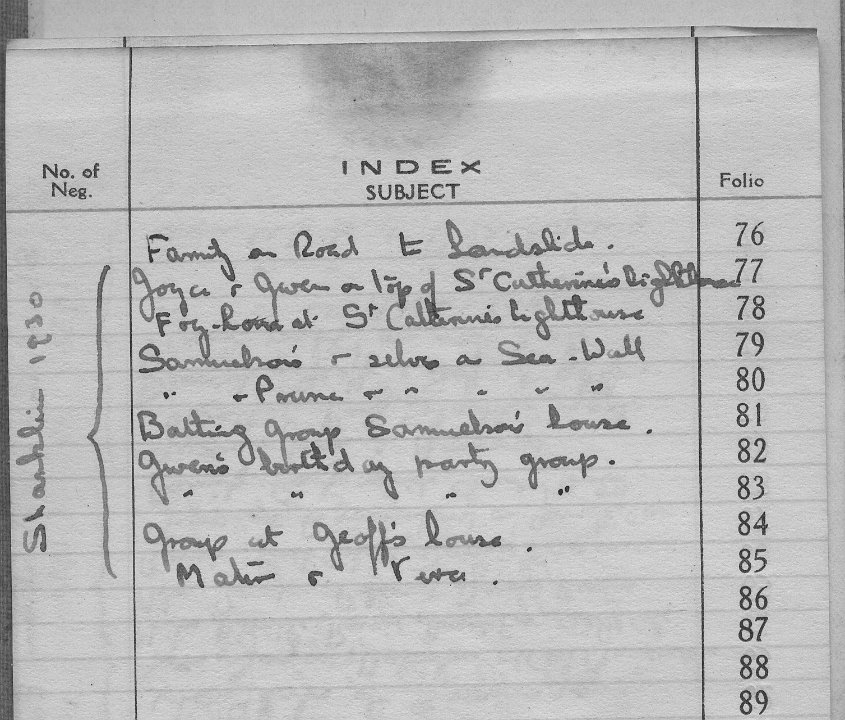 No. of Neg. INDEX SUBJECT Folio
Family on Road to Landslide. 76
Joyce & Gwen on top of St Catherine's Lighthouse 77
Fog-horn at St Catherine's Lighthouse 78
Samuelson's & selves on Sea-Wall 79
" & Prune & " " " " 80
Batting Group Samuelson's house. 81
Gwen's birthday party group. 82
" " " " 83
Group at Geoff's house. 84
& Vera. 85
86
87
88
89
Shanklin 1930